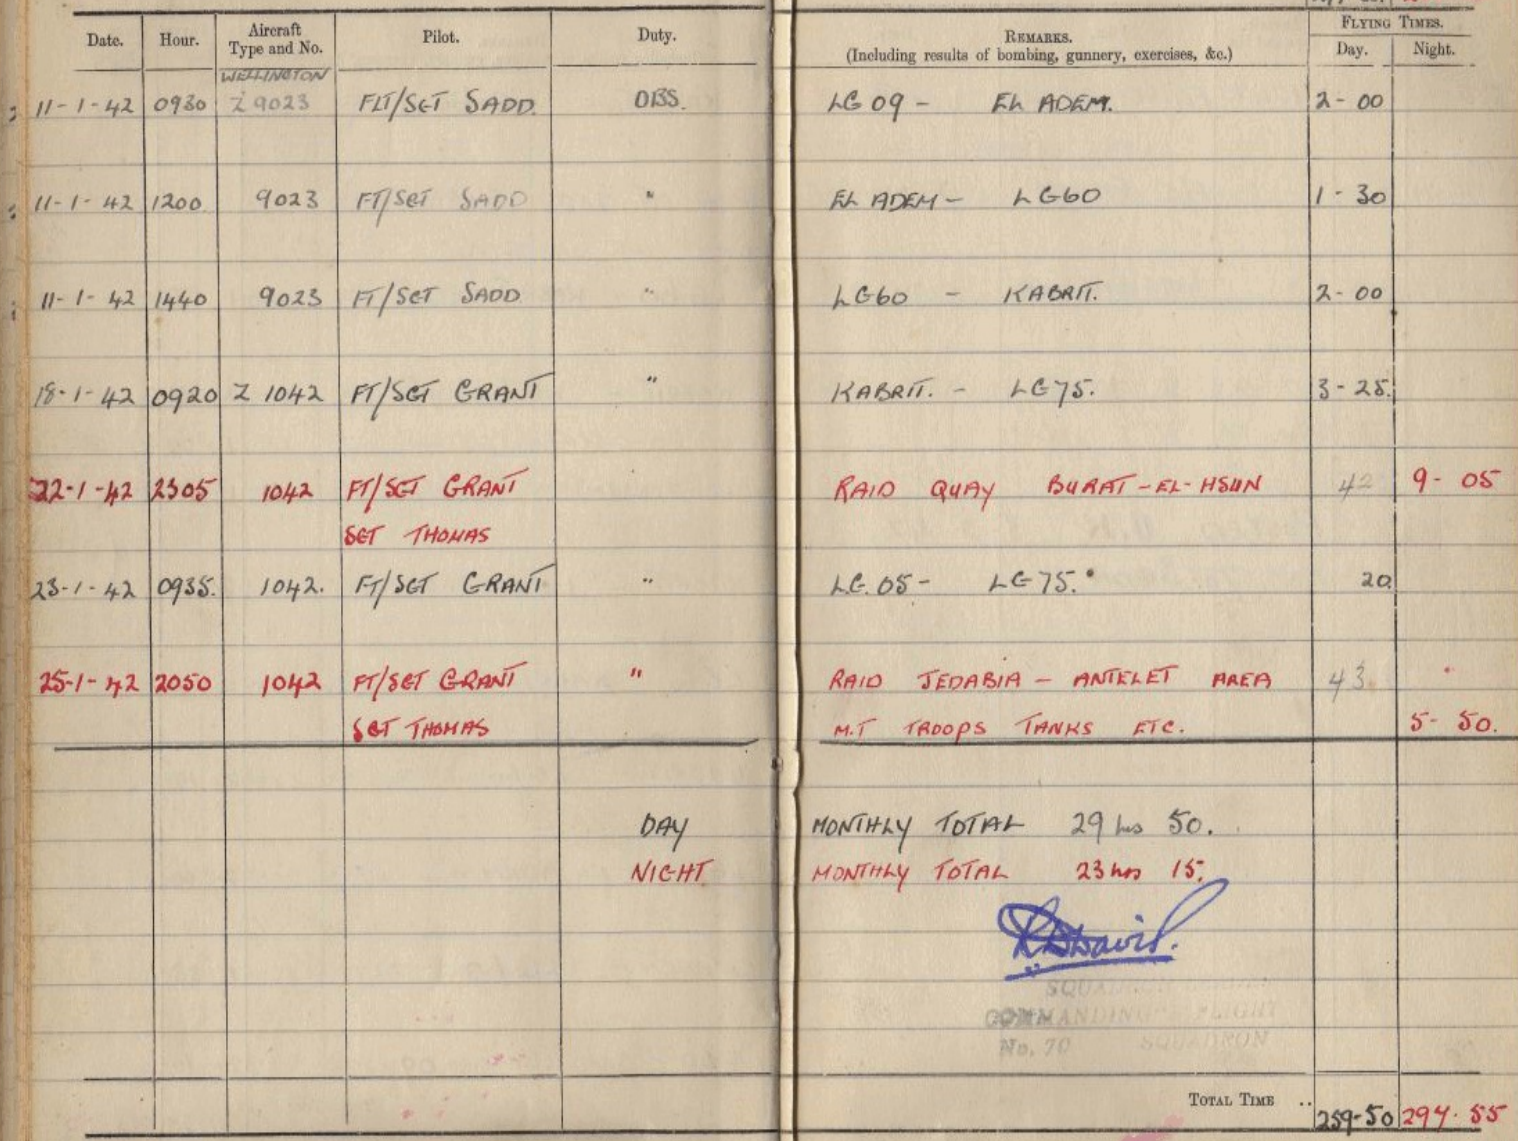 Date. Hour. Aircraft Type and No. Pilot. Duty. REMARKS. (Including results of bombing, gunnery, exercises, &c.) FLYING TIMES. Day. Night.
WELLINGTON
11-1-42 0930 Z 9023 FLT/SGT SADD. OBS. LG 09 - EL ADEM. 2-00
11-1-42 1200 9023 FT/SGT SADD " EL ADEM - LG60 1-30
11-1-42 1440 9023 FT/SGT SADD " LG60 - KABRIT. 2-00
18-1-42 0920 Z 1042 FT/SGT GRANT " KABRIT. - LG75. 3-25.
22-1-42 2305 1042 FT/SGT GRANT " RAID QUAY BURAT-EL-HSUN 42 9-05
SGT THOMAS
23-1-42 0935. 1042. FT/SGT GRANT " LG.05- LG75. 20.
25-1-42 2050 1042 FT/SGT GRANT " RAID JEDABIA - ANTELET AREA 43
SGT THOMAS M.T TROOPS TANKS ETC. 5-50.
DAY MONTHLY TOTAL 29 hrs 50.
NIGHT MONTHLY TOTAL 23 hrs 15.
SQUADRON LEADER
COMMANDING FLIGHT
No. 70 SQUADRON
TOTAL TIME .. 259-50 294-55